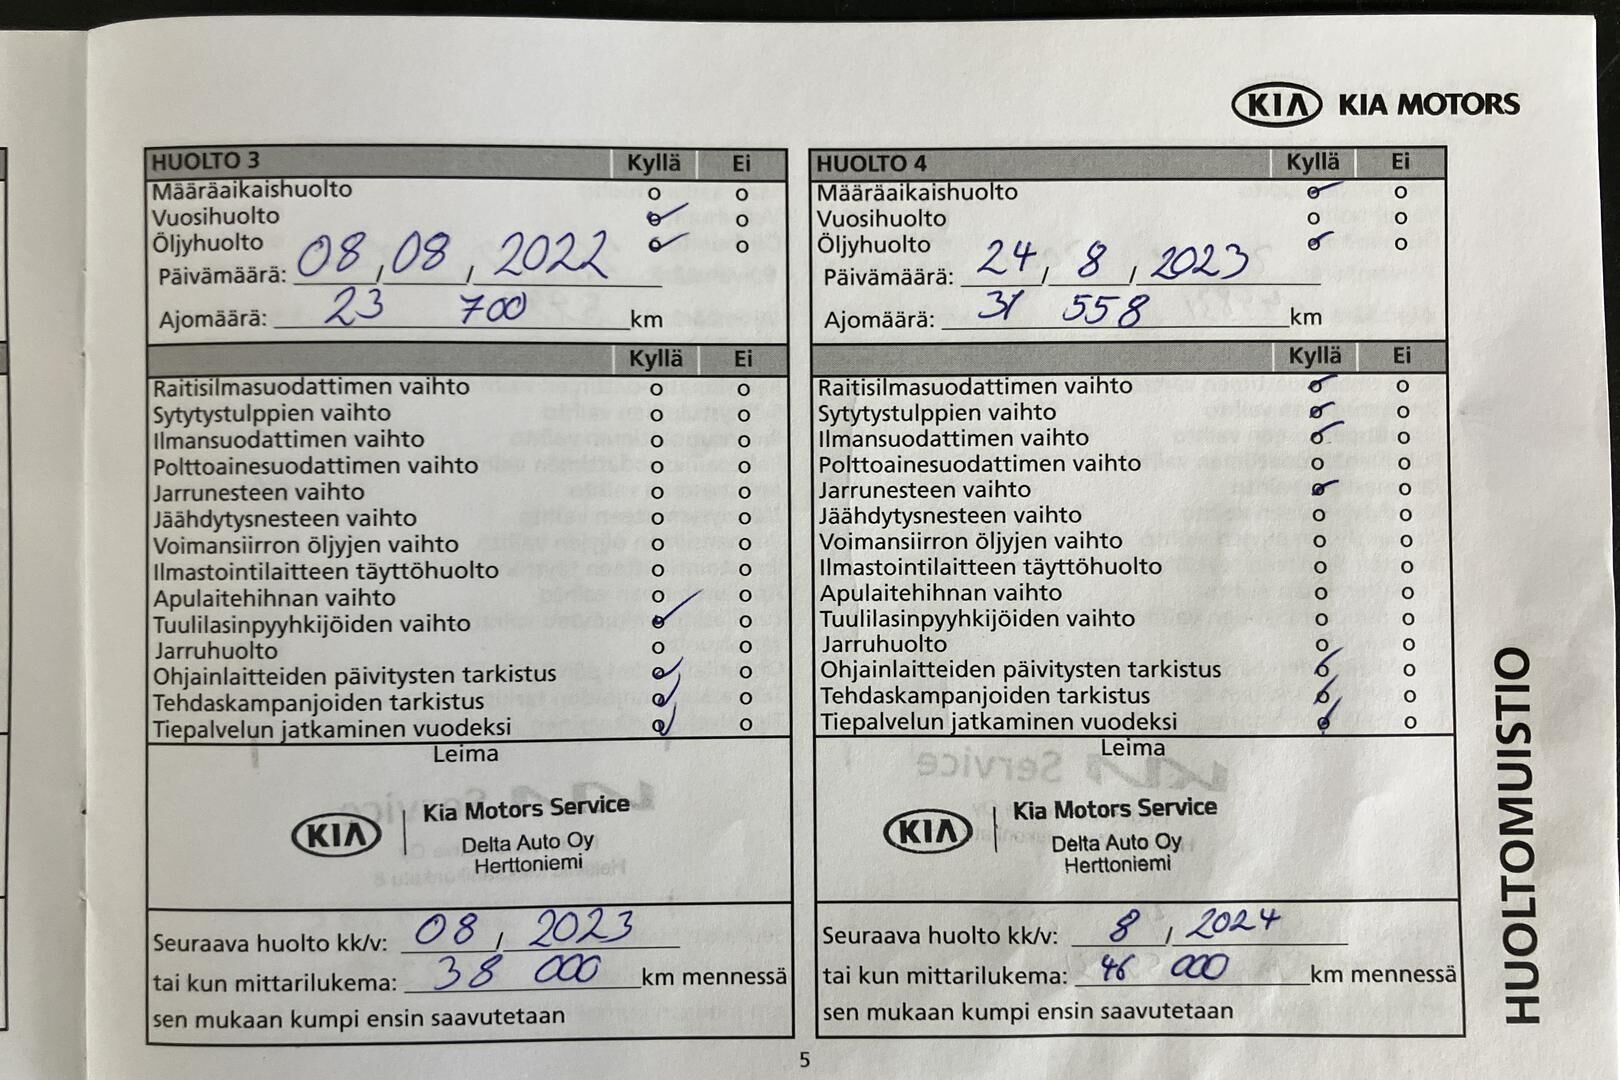 KIA KIA MOTORS
HUOLTO 3 Kyllä Ei
Määräaikaishuolto o o
Vuosihuolto o o
Öljyhuolto o o
Päivämäärä: 08 / 08 / 2022
Ajomäärä: 23 700 km
Kyllä Ei
Raitisilmasuodattimen vaihto o o
Sytytystulppien vaihto o o
Ilmansuodattimen vaihto o o
Polttoainesuodattimen vaihto o o
Jarrunesteen vaihto o o
Jäähdytysnesteen vaihto o o
Voimansiirron öljyjen vaihto o o
Ilmastointilaitteen täyttöhuolto o o
Apulaitehihnan vaihto o o
Tuulilasinpyyhkijöiden vaihto o o
Jarruhuolto o o
Ohjainlaitteiden päivitysten tarkistus o o
Tehdaskampanjoiden tarkistus o o
Tiepalvelun jatkaminen vuodeksi o o
Leima
KIA Kia Motors Service
Delta Auto Oy
Herttoniemi
Seuraava huolto kk/v: 08 / 2023
tai kun mittarilukema: 38 000 km mennessä
sen mukaan kumpi ensin saavutetaan
HUOLTO 4 Kyllä Ei
Määräaikaishuolto o o
Vuosihuolto o o
Öljyhuolto o o
Päivämäärä: 24 / 8 / 2023
Ajomäärä: 31 558 km
Kyllä Ei
Raitisilmasuodattimen vaihto o o
Sytytystulppien vaihto o o
Ilmansuodattimen vaihto o o
Polttoainesuodattimen vaihto o o
Jarrunesteen vaihto o o
Jäähdytysnesteen vaihto o o
Voimansiirron öljyjen vaihto o o
Ilmastointilaitteen täyttöhuolto o o
Apulaitehihnan vaihto o o
Tuulilasinpyyhkijöiden vaihto o o
Jarruhuolto o o
Ohjainlaitteiden päivitysten tarkistus o o
Tehdaskampanjoiden tarkistus o o
Tiepalvelun jatkaminen vuodeksi o o
Leima
KIA Kia Motors Service
Delta Auto Oy
Herttoniemi
Seuraava huolto kk/v: 8 / 2024
tai kun mittarilukema: 46 000 km mennessä
sen mukaan kumpi ensin saavutetaan
HUOLTOMUISTIO
5